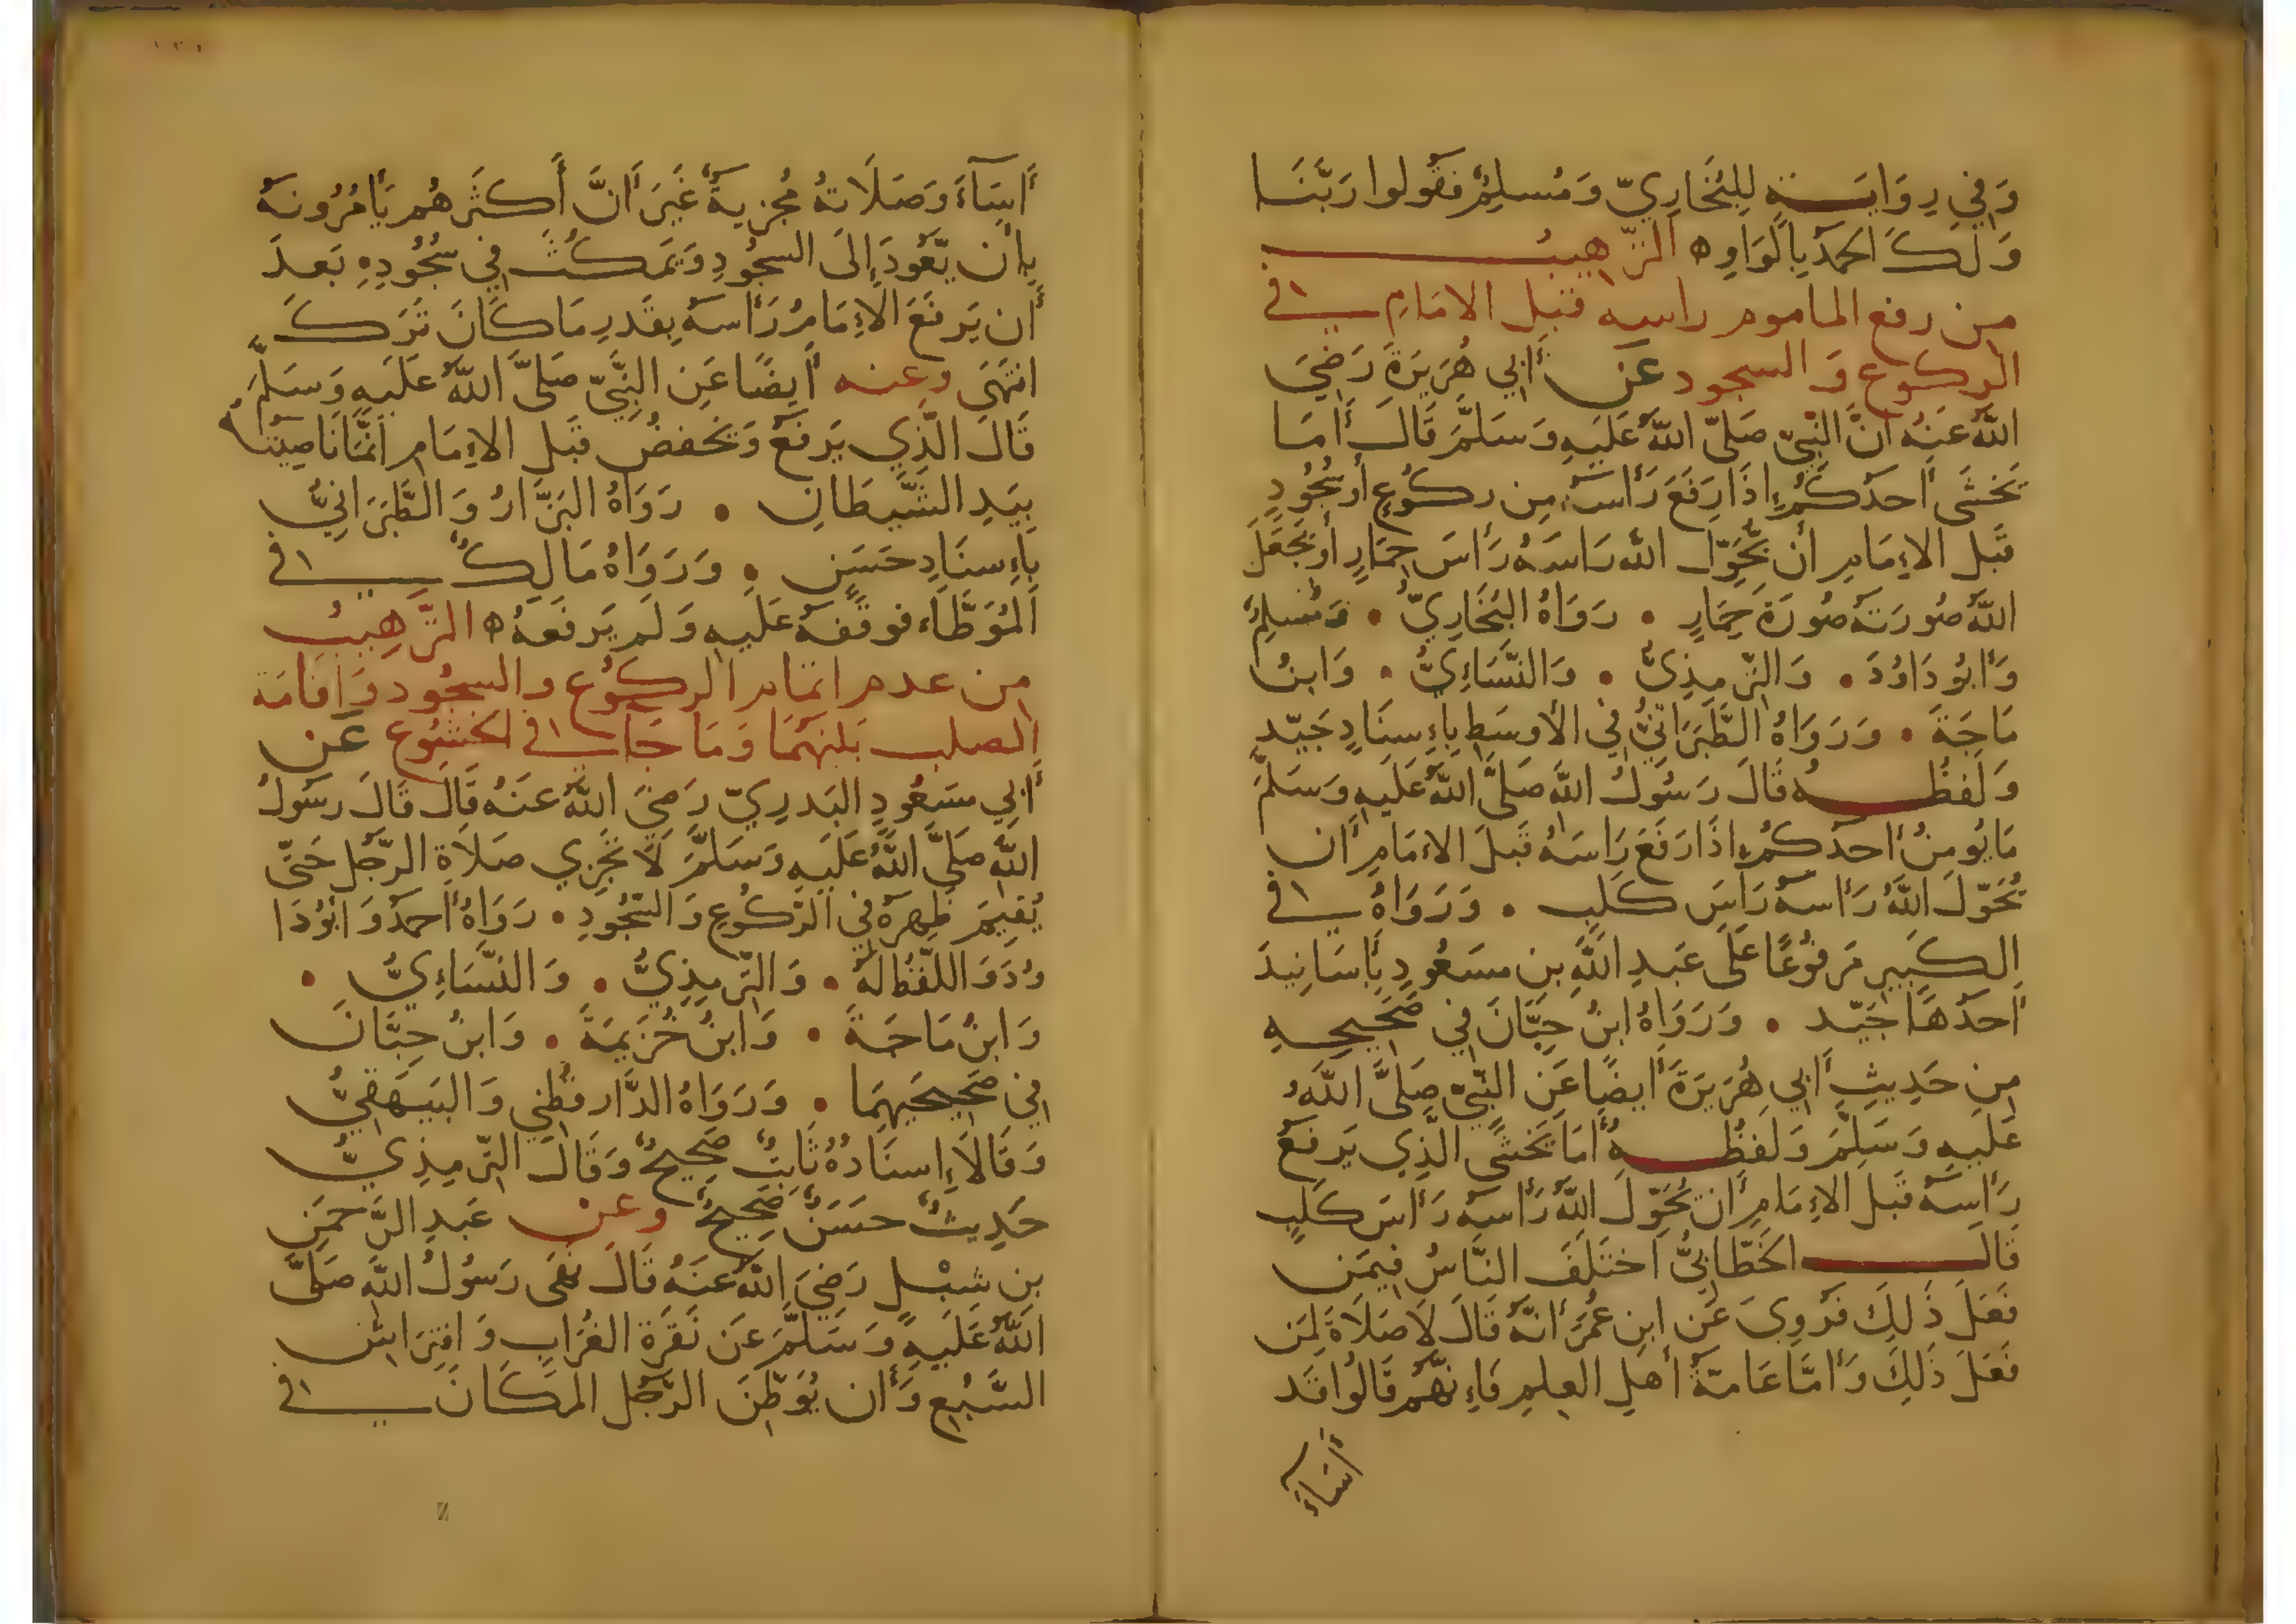 وَفِي رِوَايَةٍ لِلبُخَارِيِّ وَمُسلِمٍ فَقُولوا رَبَّنَا
وَلَكَ الحَمدُ بِالوَاوِ ه التَّرهِيبُ
من رفع الماموم راسه قبل الامام في
الركوع وَالسجود عَن أَبِي هُرَيرَةَ رَضِيَ
اللَّهُ عَنهُ أَنَّ النَّبِيَّ صَلَّى اللَّهُ عَلَيهِ وَسَلَّمَ قَالَ أَمَا
يَخشَى أَحَدُكُم إِذَا رَفَعَ رَأسَهُ مِن رُكُوعٍ أَو سُجُودٍ
قَبلَ الإِمَامِ أَن يُحَوِّلَ اللَّه رَاسَهُ رَأسَ حِمَارٍ أَو يَجعَلَ
اللَّهُ صُورَتَهُ صُورَةَ حِمَارٍ • رَوَاهُ البُخَارِيُّ • وَمُسلِمٌ
وَأَبُو دَاوُدَ • وَالتِّرمِذِيُّ • وَالنَّسَاءِيُّ • وَابنُ
مَاجَةَ • وَرَوَاهُ الطَّبَرَانِيُّ فِي الأَوسَطِ بِإِسنَادٍ جَيِّدٍ
وَلَفظُهُ قَالَ رَسُولُ اللَّهِ صَلَّى اللَّهُ عَلَيهِ وَسَلَّمَ
مَا يُومِنُ أَحَدُكُم إِذَا رَفَعَ رَاسَهُ قَبلَ الإِمَامِ أَن
يُحَوِّلَ اللَّهُ رَأسَهُ رَأسَ كَلبٍ • وَرَوَاهُ في
الكَبِيرِ مَرفُوعًا عَلَى عَبدِ اللَّهِ بنِ مسعُودٍ بِأَسَانِيدَ
أَحَدُهَا جَيِّد • وَرَوَاهُ ابنُ حِبَّانَ فِي صَحِيحِهِ
مِن حَدِيثِ أَبِي هُرَيرَةَ أَيضًا عَنِ النَّبِيِّ صَلَّى اللَّهُ
عَلَيهِ وَسَلَّمَ وَلَفظُهُ أَمَا يَخشَى الَّذِي يَرفَعُ
رَأسَهُ قَبلَ الإِمَامِ أَن يُحَوِّلَ اللَّهُ رَأسَهُ رَأسَ كَلبٍ
قَالَ الخَطَّابِيُّ اختَلَفَ النَّاسُ فِيمَن
فَعَلَ ذَلِكَ فَرُوِيَ عَن ابنِ عُمَرَ أَنَّهُ قَالَ لَا صَلَاةَ لِمَن
فَعَلَ ذَلِكَ وَأَمَّا عَامَّةُ أَهلِ العِلمِ فَإِنَّهُم قَالُوا قَد
أَسَآءَ
أَسَآءَ وَصَلَاتُهُ مُجزِيَةٌ غَيرَ أَنَّ أَكثَرَهُم يَأمُرُونَهُ
بِأَن يَّعُودَ إِلَى السجُودِ وَيَمكُثَ فِي سُجُودِهِ بَعدَ
أَن يَرفَعَ الإِمَامُ رَأسَهُ بِقَدرِ مَا كَانَ تَرَكَ
انتَهَى وعنه أَيضًا عَنِ النَّبِيِّ صَلَّى اللَّهُ عَلَيهِ وَسَلَّمَ
قَالَ الَّذِي يَرفَعُ وَيَخفِضُ قَبلَ الإِمَامِ إِنَّمَا نَاصِيَتُهُ
بِيَدِ الشَّيطَانِ • رَوَاهُ البَزَّارُ وَالطَّبَرَانِيُّ
بِإِسنَادٍ حَسَنٍ • وَرَوَاهُ مَالِكٌ في
المُوَطَّاء فوقَفَهُ عَلَيهِ وَلَم يَرفَعهُ ه التَّرهِيبُ
من عدم اتمام الركوُع والسجُود وَاقامَة
الصلب بَينَهُمَا وَمَا جَا في الخشُوع عَن
أَبِي مسعُودٍ البَدرِيِّ رَضِيَ اللَّهُ عَنهُ قَالَ قَالَ رَسُولُ
اللَّهِ صَلَّى اللَّهُ عَلَيهِ وَسَلَّمَ لَا تُجزِي صَلَاةُ الرَّجُلِ حَتَّى
يُقِيمَ ظَهرَهُ فِي الرُّكُوعِ وَالسُّجُودِ • رَوَاهُ أَحمَدُ وَأَبُو دَا
وُدَ وَاللَّفظُ لَهُ • وَالتِّرمِذِيُّ • وَالنَّسَاءِيُّ •
وَابنُ مَاجَةَ • وَابنُ خُزَيمَةَ • وَابنُ حِبَّانَ
فِي صَحِيحَيهِمَا • وَرَوَاهُ الدَّارقُطنِي وَالبَيهَقِيُّ
وَقَالَا إِسنَادُهُ ثَابِتٌ صَحِيحٌ وَقَالَ التِّرمِذِيُّ
حَدِيثٌ حسَنٌ صَحِيحٌ وعن عَبدِ الرَّحمَنِ
بنِ شِبْلٍ رَضِيَ اللَّهُ عَنهُ قَالَ نَهَى رَسُولُ اللَّهِ صَلَّى
اللَّهُ عَلَيهِ وَسَلَّمَ عَن نَقرَةِ الغُرَابِ وَافتِرَاشِ
السَّبُعِ وَأَن يُوَطِّنَ الرَّجُلُ المَكَانَ في